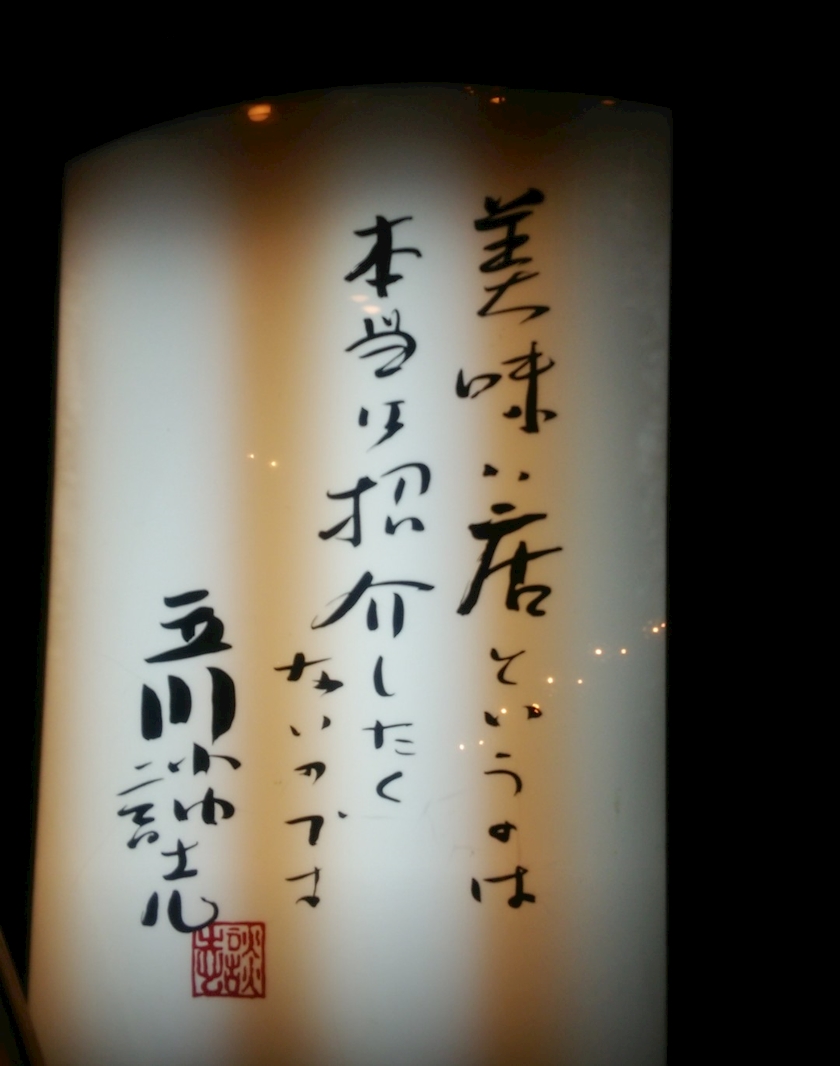 美味い店というのは
本当は紹介したく
ないのです
立川談志
談志